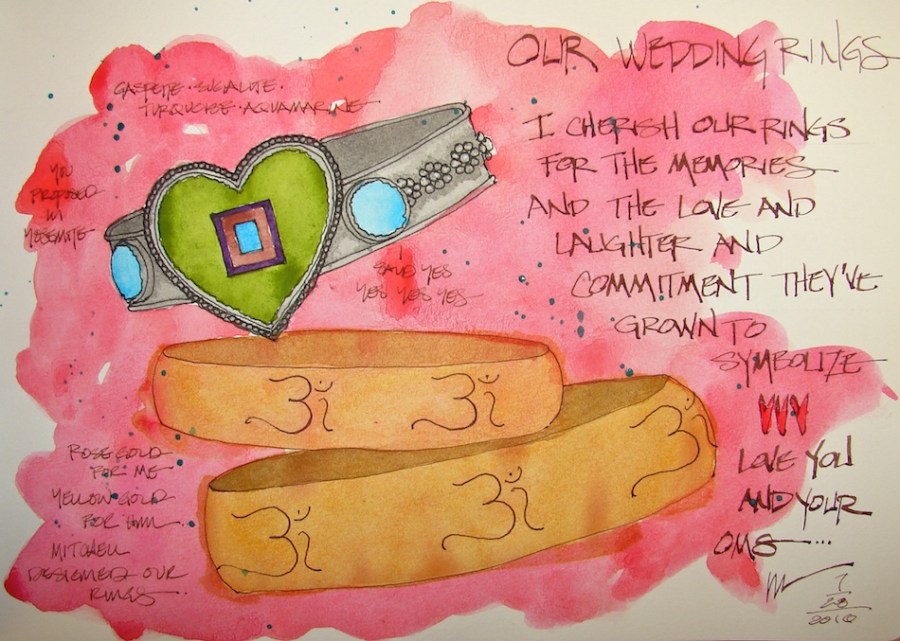 OUR WEDDING RINGS
GASPEITE · SUGALITE ·
TURQUOISE · AQUAMARINE
I CHERISH OUR RINGS
FOR THE MEMORIES
AND THE LOVE AND
LAUGHTER AND
COMMITMENT THEY'VE
GROWN TO
SYMBOLIZE
YOU
PROPOSED
IN
YOSEMITE
I
SAID YES
YES YES YES
ॐ ॐ
ॐ ॐ ॐ
ROSE GOLD
FOR ME
YELLOW GOLD
FOR HIM
MITCHELL
DESIGNED OUR
RINGS
LOVE YOU
AND YOUR
OMS...
7
28
2010